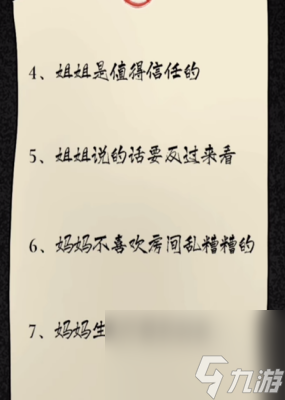 4、姐姐是值得信任的
5、姐姐说的话要反过来看
6、妈妈不喜欢房间乱糟糟的
7、妈妈生
九游